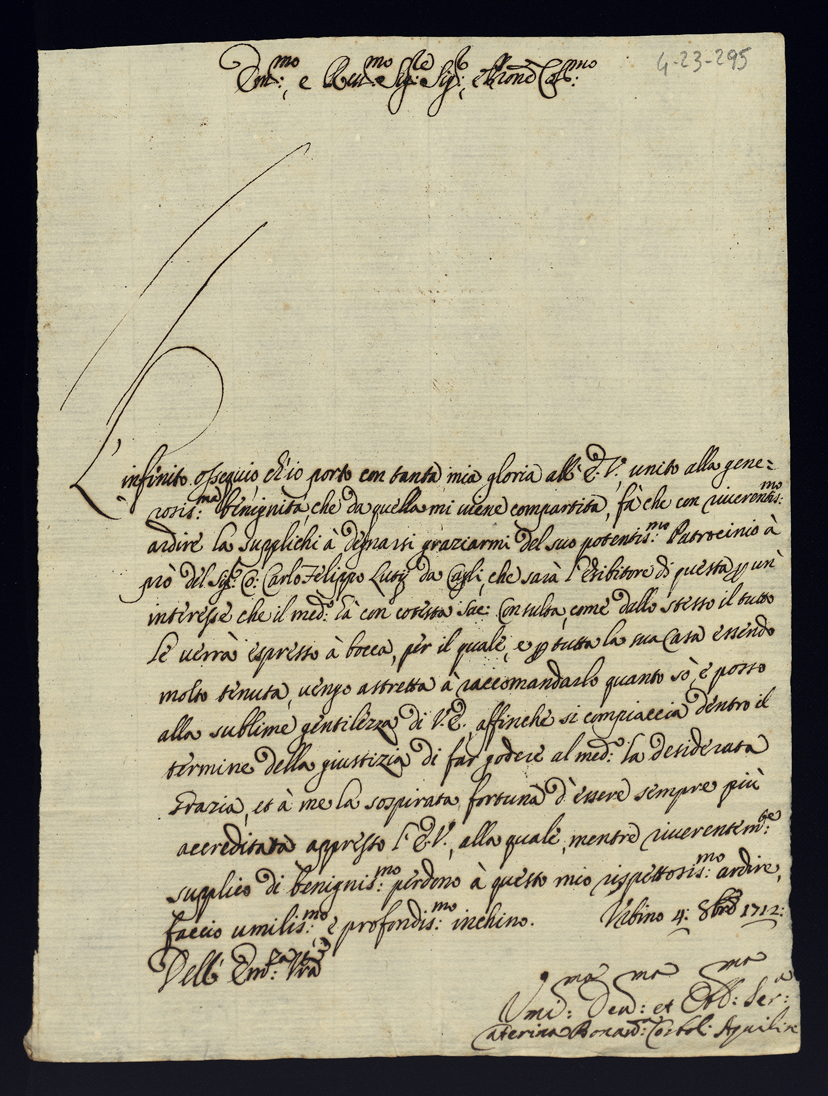 4-23-295
Em:mo, e Reu:mo Sig:re Sig:r, e Pron Col:mo
L'infinito ossequio ch'io porto con tanta mia gloria all'E.V., unito alla gene=
rosis:ma benignità, che da quella mi viene compartita, fà che con riverentis:mo
ardire la supplichi à degnarsi graziarmi del suo potentis:mo Patrocinio à
prò del Sig:r Co: Carlo Felippo Lutij da Cagli, che sarà l'esibitore di questa p un'
interesse che il med:o hà con cotesta Sac: Consulta, come dallo stesso il tutto
le verrà espresso à bocca, per il quale, e p tutta la sua Casa essendo
molto tenuta, vengo astretta à raccomandarlo quanto sò, e posso
alla sublime gentilezza di V.E., affinche si compiaccia dentro il
termine della giustizia di far godere al med:o la desiderata
grazia, et à me la sospirata fortuna d'essere sempre più
accreditata appresso l'E.V., alla quale, mentre riverentem:te
supplico di benignis:mo perdono à questo mio rispettosis:mo ardire,
faccio umilis:mo e profondis:mo inchino. Urbino 4: 8bre 1712:
Dell'Em:za Vra
Umi:ma Deu:ma et Obb:ma Ser:a
Caterina Aquilini